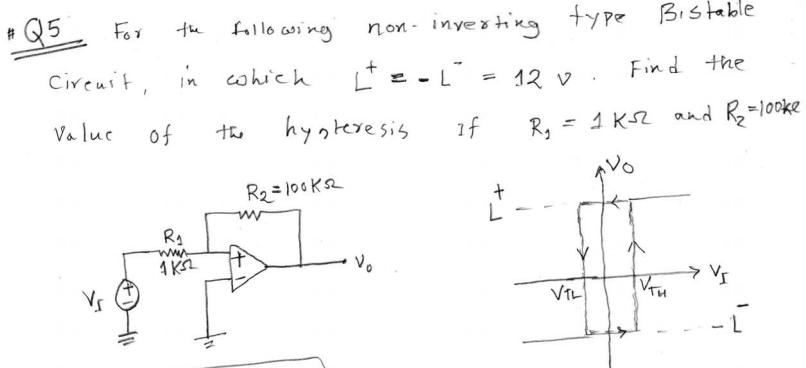 # Q5 For the following non-inverting type Bistable
Circuit, in which L⁺ = -L⁻ = 12 v. Find the
Value of the hysteresis if R₁ = 1 KΩ and R₂=100kΩ
R₂=100KΩ
R₁
1KΩ
+
-
Vo
VI
+
-
VO
L⁺
VTL
VTH
VI
-L⁻